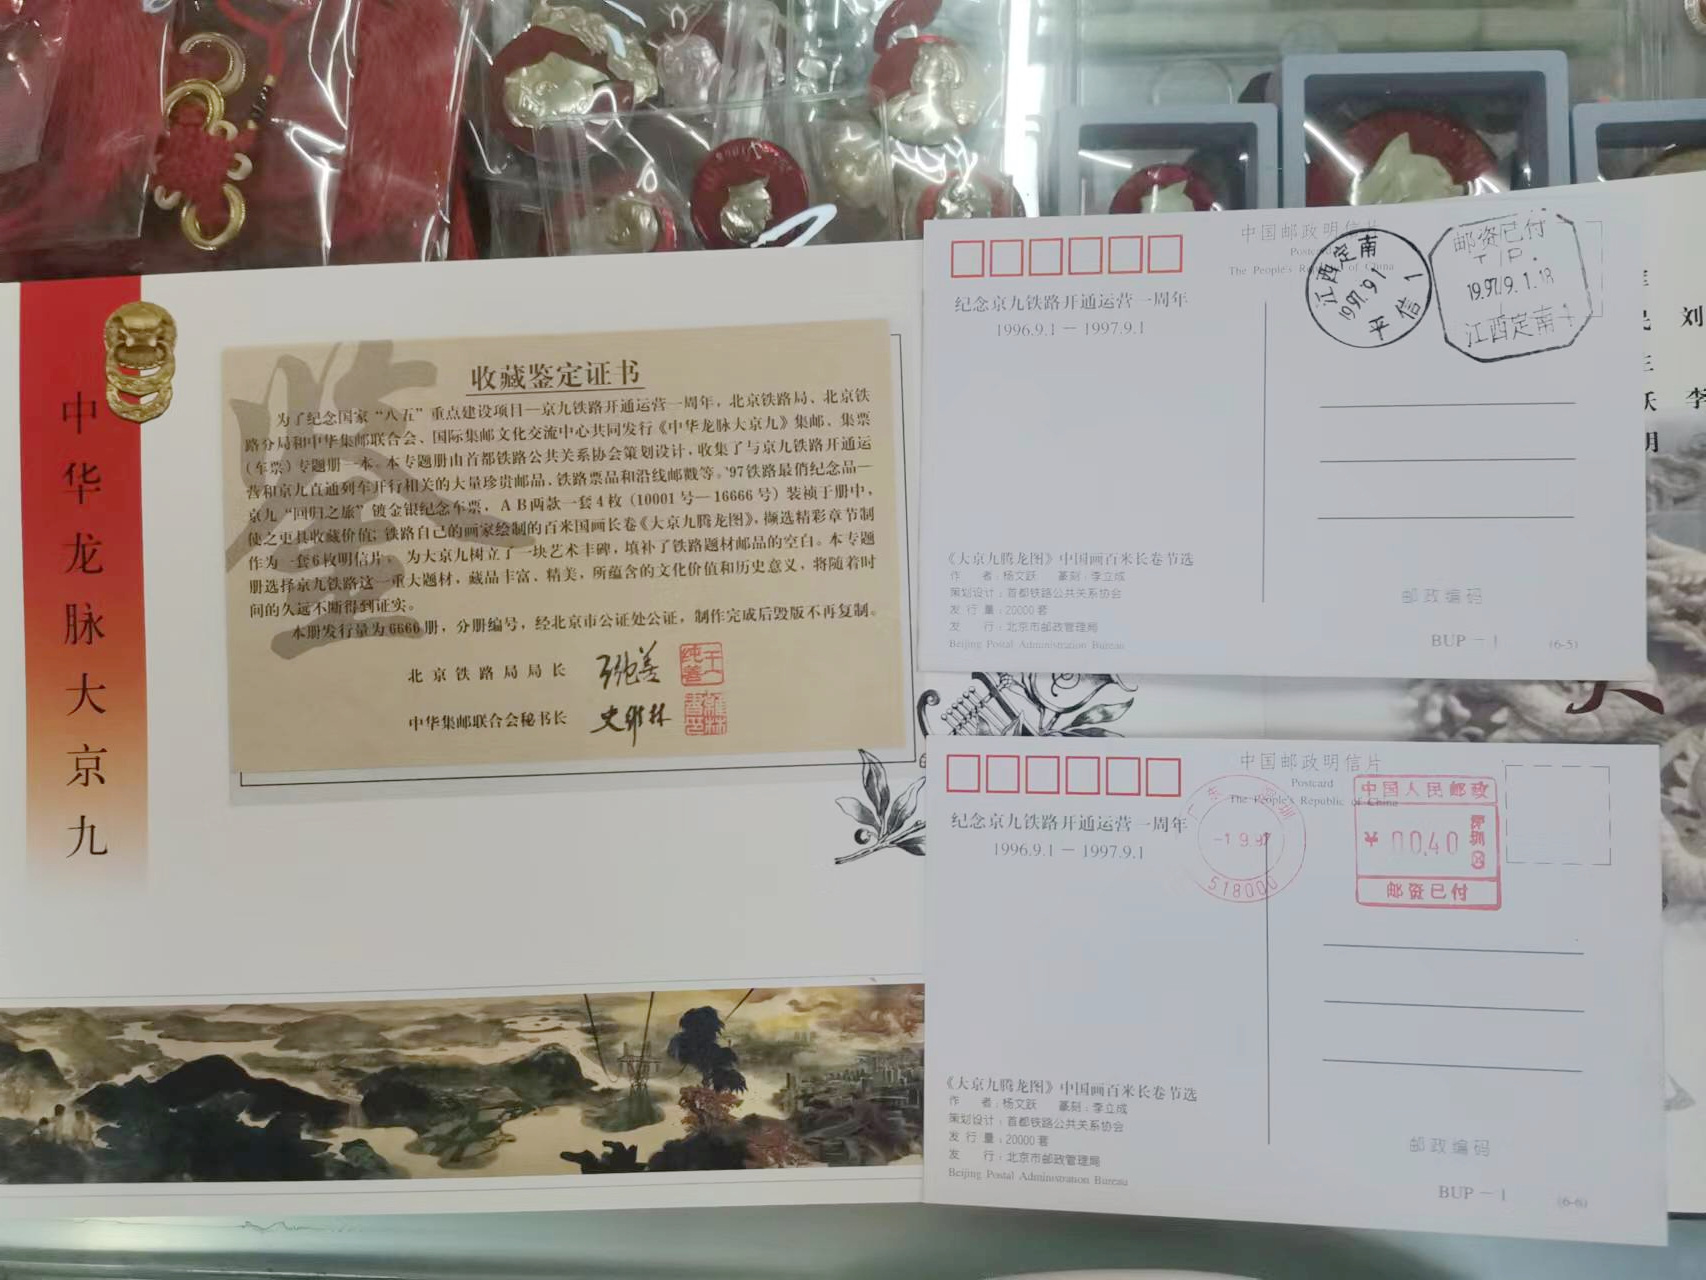 中华龙脉大京九
收藏鉴定证书
为了纪念国家“八五”重点建设项目—京九铁路开通运营一周年，北京铁路局、北京铁
路分局和中华集邮联合会、国际集邮文化交流中心共同发行《中华龙脉大京九》集邮、集票
（车票）专题册一本。本专题册由首都铁路公共关系协会策划设计，收集了与京九铁路开通运
营和京九直通列车开行相关的大量珍贵邮品、铁路票品和沿线邮戳等。’97铁路最俏纪念品—
京九“回归之旅”镀金银纪念车票，AB两款一套4枚（10001号—16666号）装祯于册中，
使之更具收藏价值；铁路自己的画家绘制的百米国画长卷《大京九腾龙图》，撷选精彩章节制
作为一套6枚明信片。为大京九树立了一块艺术丰碑，填补了铁路题材邮品的空白。本专题
册选择京九铁路这一重大题材，藏品丰富、精美，所蕴含的文化价值和历史意义，将随着时
间的久远不断得到证实。
本册发行量为6666册，分册编号，经北京市公证处公证，制作完成后毁版不再复制。
北京铁路局局长
中华集邮联合会秘书长 史维林
中国邮政明信片
Postcard
The People's Republic of China
纪念京九铁路开通运营一周年
1996.9.1－1997.9.1
江西定南
1997.9.1
平信 1
邮资已付
T.P.
1997.9.1.18
江西定南
《大京九腾龙图》中国画百米长卷节选
作 者：杨文跃 篆刻：李立成
策划设计：首都铁路公共关系协会
发行量：20000套
发 行：北京市邮政管理局
Beijing Postal Administration Bureau
邮政编码
BUP－1 (6-5)
中国邮政明信片
Postcard
The People's Republic of China
纪念京九铁路开通运营一周年
1996.9.1－1997.9.1
广东 深圳
-1.9.97
518000
中国人民邮政
￥0040 深圳
邮资已付
《大京九腾龙图》中国画百米长卷节选
作 者：杨文跃 篆刻：李立成
策划设计：首都铁路公共关系协会
发行量：20000套
发 行：北京市邮政管理局
Beijing Postal Administration Bureau
邮政编码
BUP－1 (6-6)
刘
李